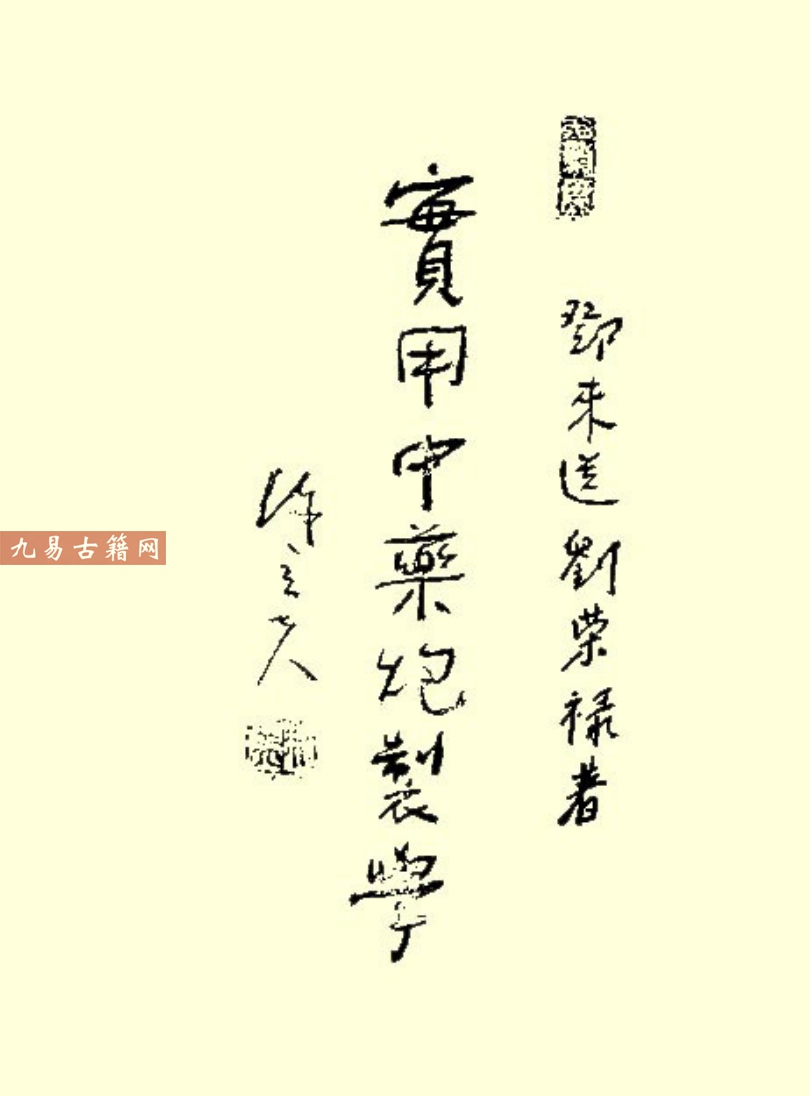 鄧來送劉荣禄著
實用中藥炮製學
九易古籍网